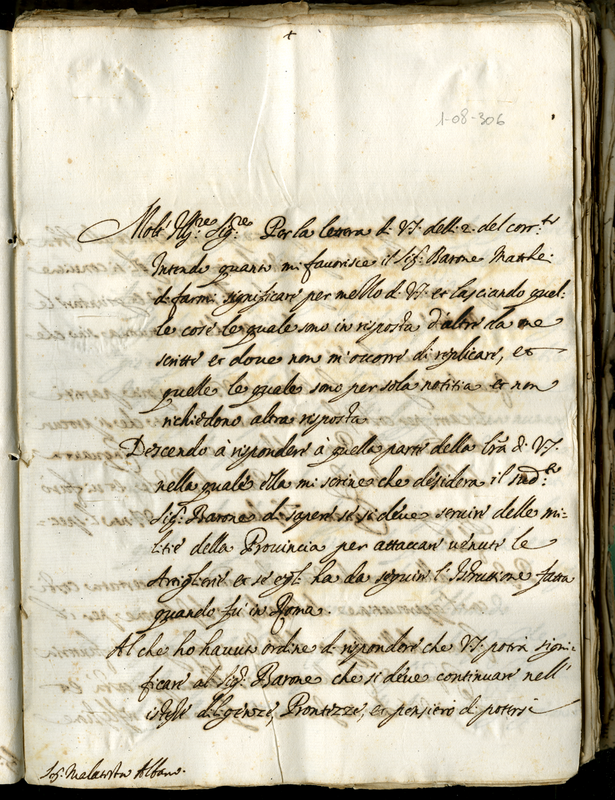 +
1-08-306
Molt' Ill.re Sig.re Per la lettera di V.S. dell. 2. del corr.te
Intendo quanto mi faurisce il Sig.r Barone Matthe:
di farmi significare per mezzo di V.S. et lasciando quel:
le cose le quale sono in risposta d'altre da me
scritte et doue non m'ocorre di replicare, et
quelle le quale sono per sola notitia et non
richiedono altra risposta
Descendo à rispondere à quella parte della lr̃a di V.S.
nella quale ella mi scriue che desidera il sud.to
Sig.r Barone di sapere se si deue seruire delle mi:
litie della Prouincia per attaccare uenute le
Artiglierie et se egli ha da seguire l'Istruttione fatta
quando fu in Roma.
Al che ho hauuto ordine di rispondere che V.S. potrà signi:
ficare al Sig.r Barone che si deue continuare nell'
istesse diligenze, Prontezze, et pensiero di potersi
Sig.r Malatesta Albano.